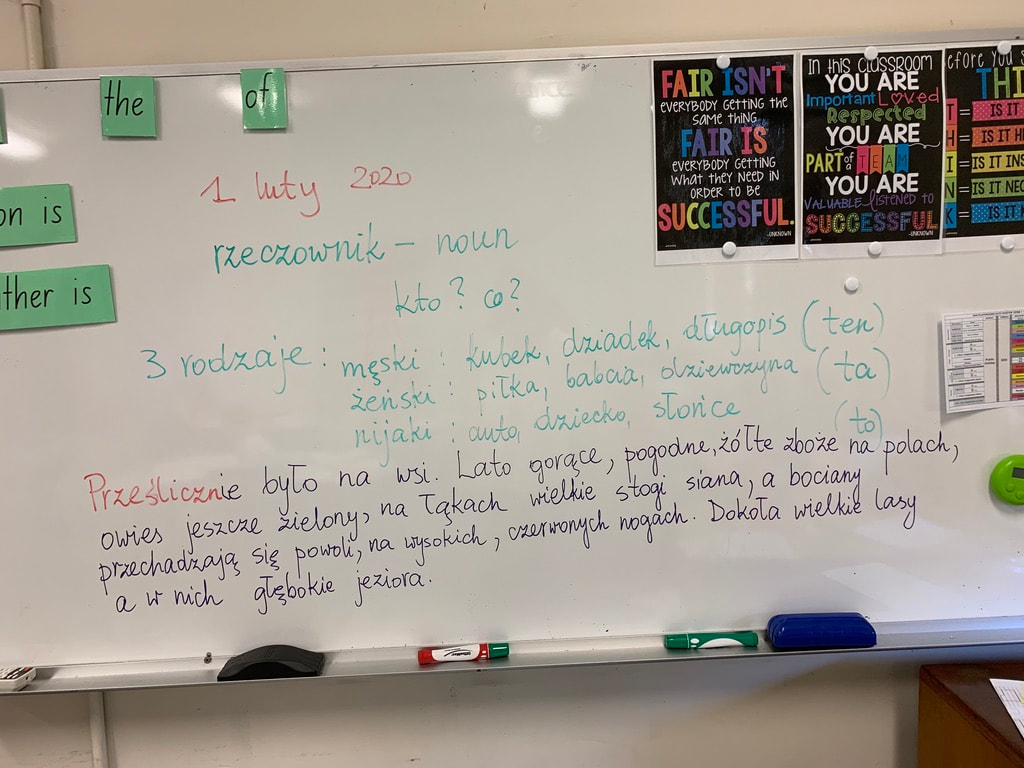 the
of
on is
ther is
1 luty 2020
rzeczownik – noun
kto? co?
3 rodzaje : męski : kubek, dziadek, długopis (ten)
żeński : piłka, babcia, dziewczyna (ta)
nijaki : auto, dziecko, słońce (to)
Prześlicznie było na wsi. Lato gorące, pogodne, żółte zboże na polach,
owies jeszcze zielony, na łąkach wielkie stogi siana, a bociany
przechadzają się powoli, na wysokich, czerwonych nogach. Dokoła wielkie lasy
a w nich głębokie jeziora.
FAIR ISN'T
EVERYBODY GETTING THE
SAME THING
FAIR IS
EVERYBODY GETTING
WHAT THEY NEED IN
ORDER TO BE
SUCCESSFUL.
-UNKNOWN
In this classroom
YOU ARE
Important Loved
Respected
YOU ARE
PART of a TEAM
YOU ARE
VALUABLE listened to
SUCCESSFUL
-UNKNOWN
efore you s
THI
= IS IT
H = IS IT H
I = IS IT INS
N = IS IT NEC
K = IS IT